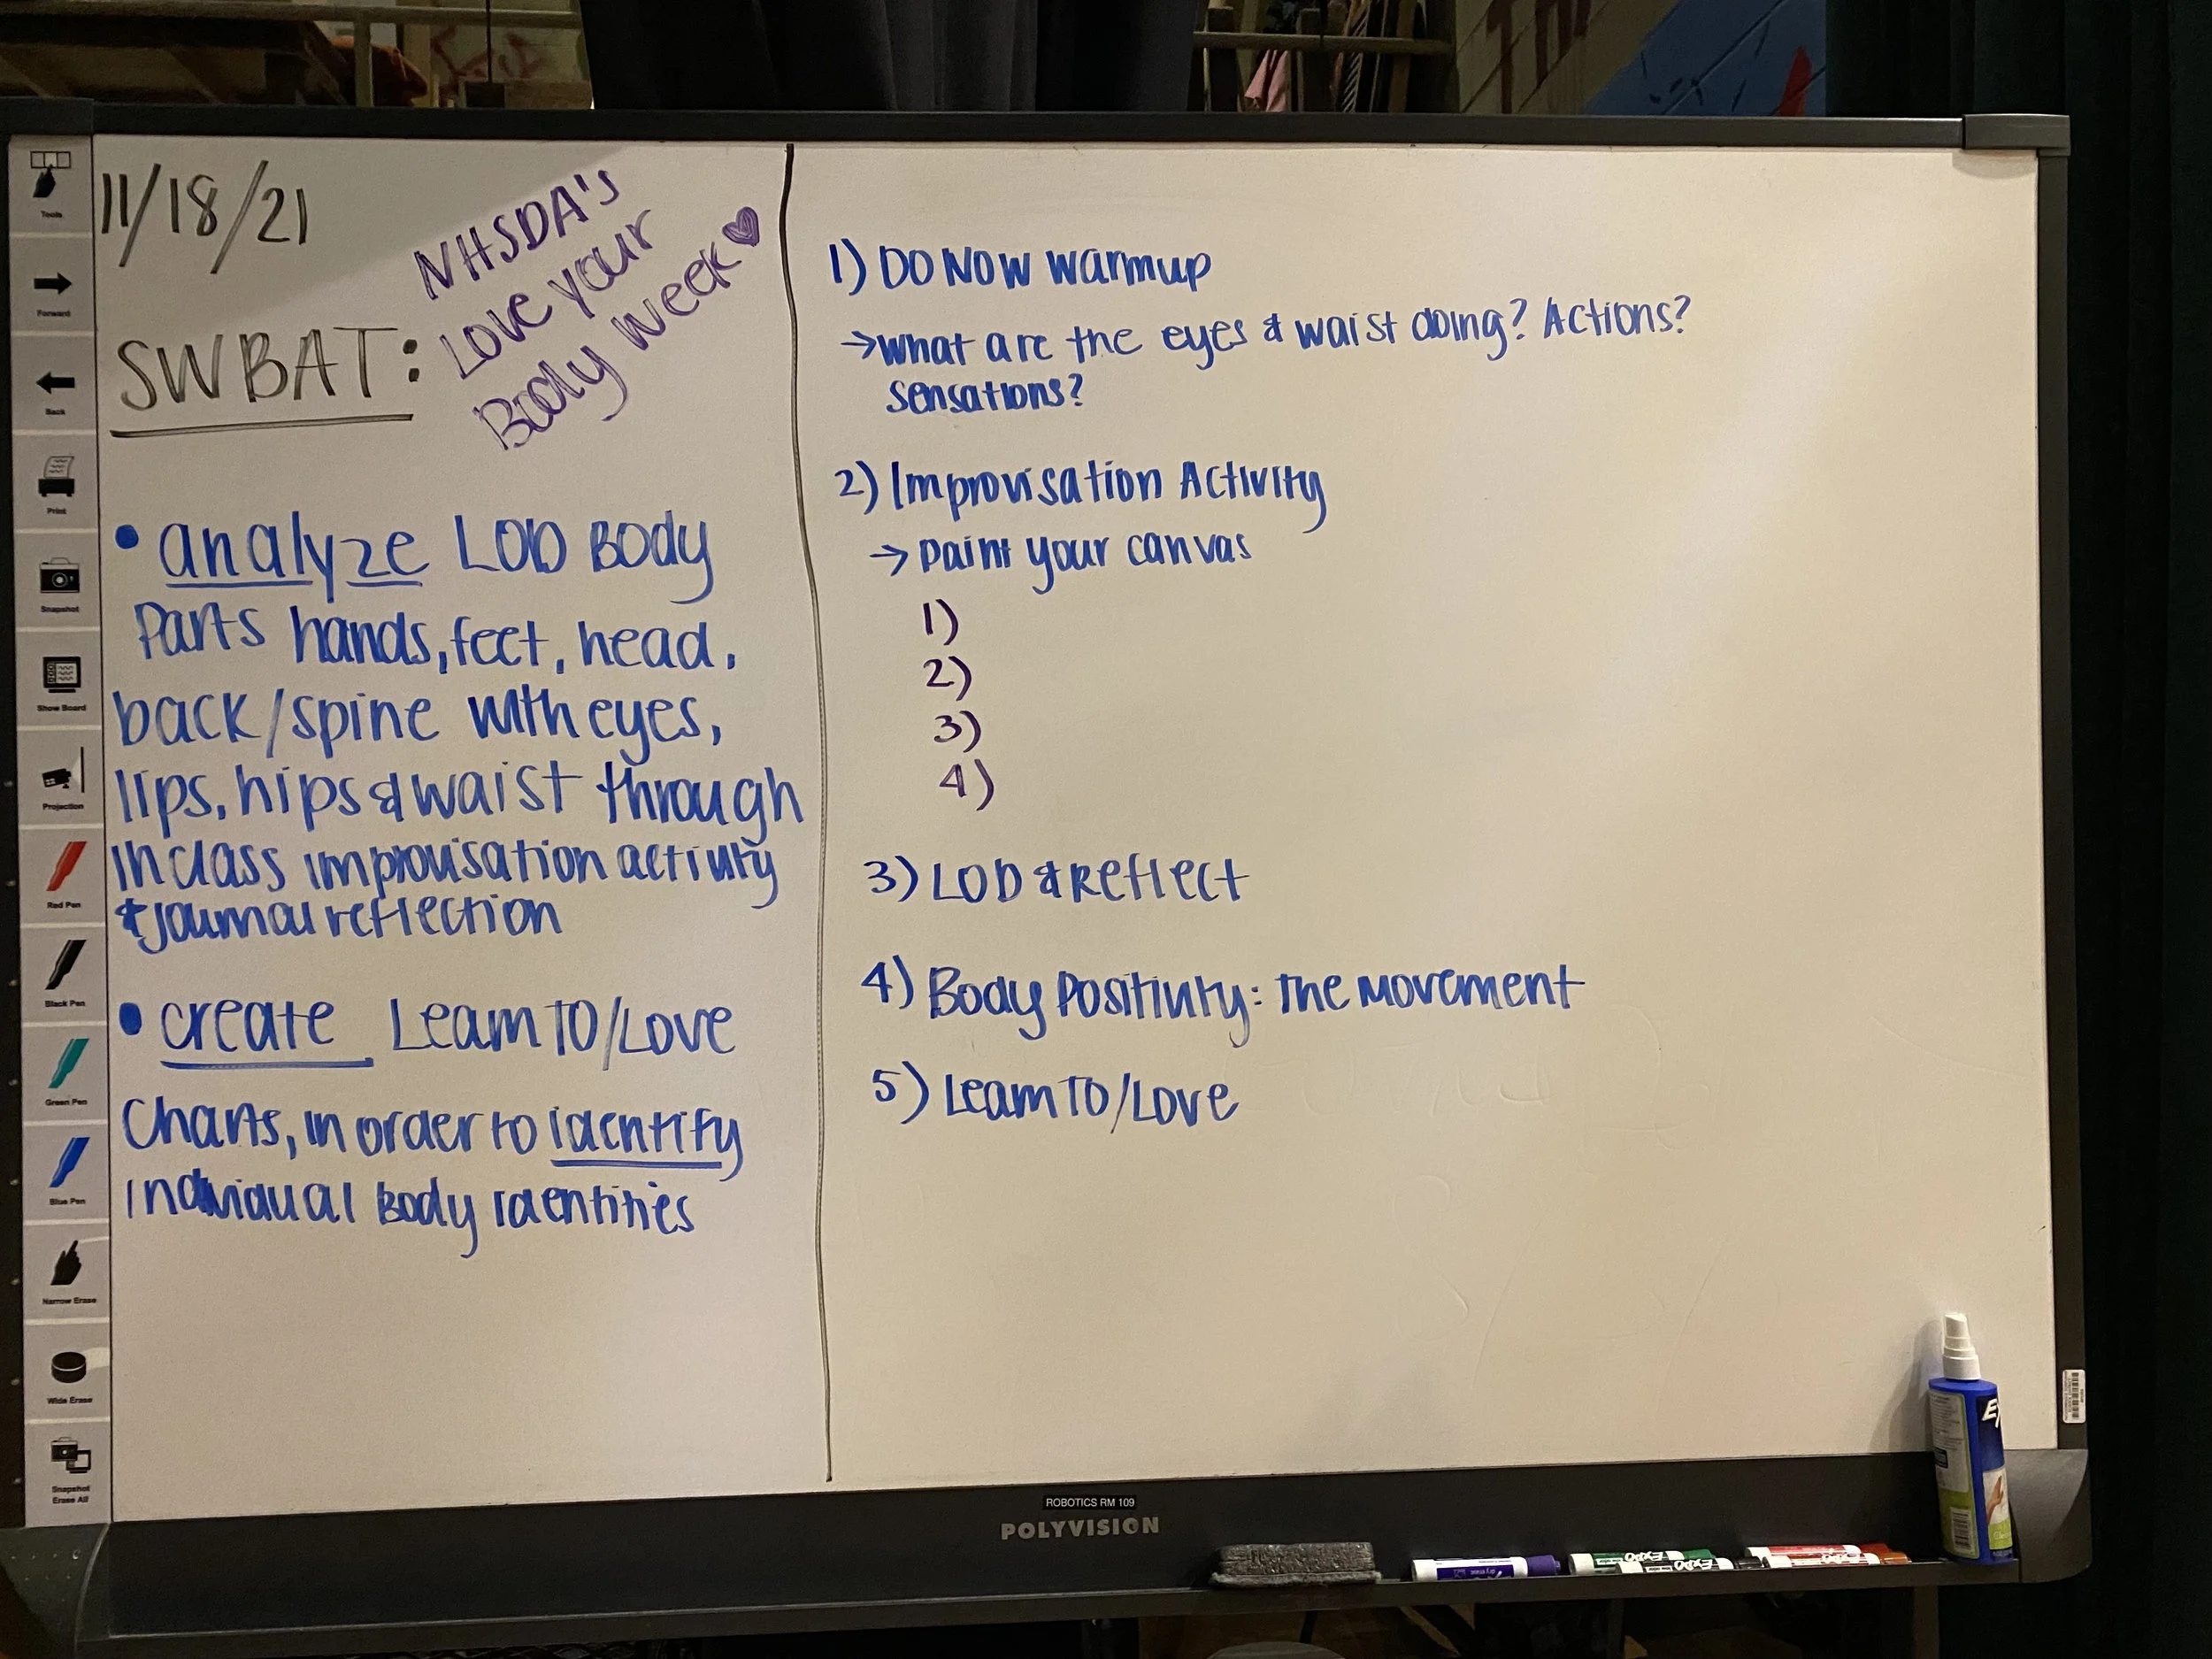 11/18/21
NHSDA's
Love your
Body Week
SWBAT:
• analyze LOD Body
Parts hands, feet, head,
back/spine with eyes,
lips, hips & waist through
in class improvisation activity
& journal reflection
• create Learn TO/Love
Charts, in order to identify
individual Body identities
1) DO NOW warmup
→ What are the eyes & waist doing? Actions?
sensations?
2) Improvisation Activity
→ paint your canvas
1)
2)
3)
4)
3) LOD & Reflect
4) Body Positivity: The Movement
5) Learn TO/Love
Tools
Forward
Back
Print
Snapshot
Show Board
Projection
Red Pen
Black Pen
Green Pen
Blue Pen
Narrow Erase
Wide Erase
Snapshot
Erase All
ROBOTICS RM 109
POLYVISION
EXPO
EXPO